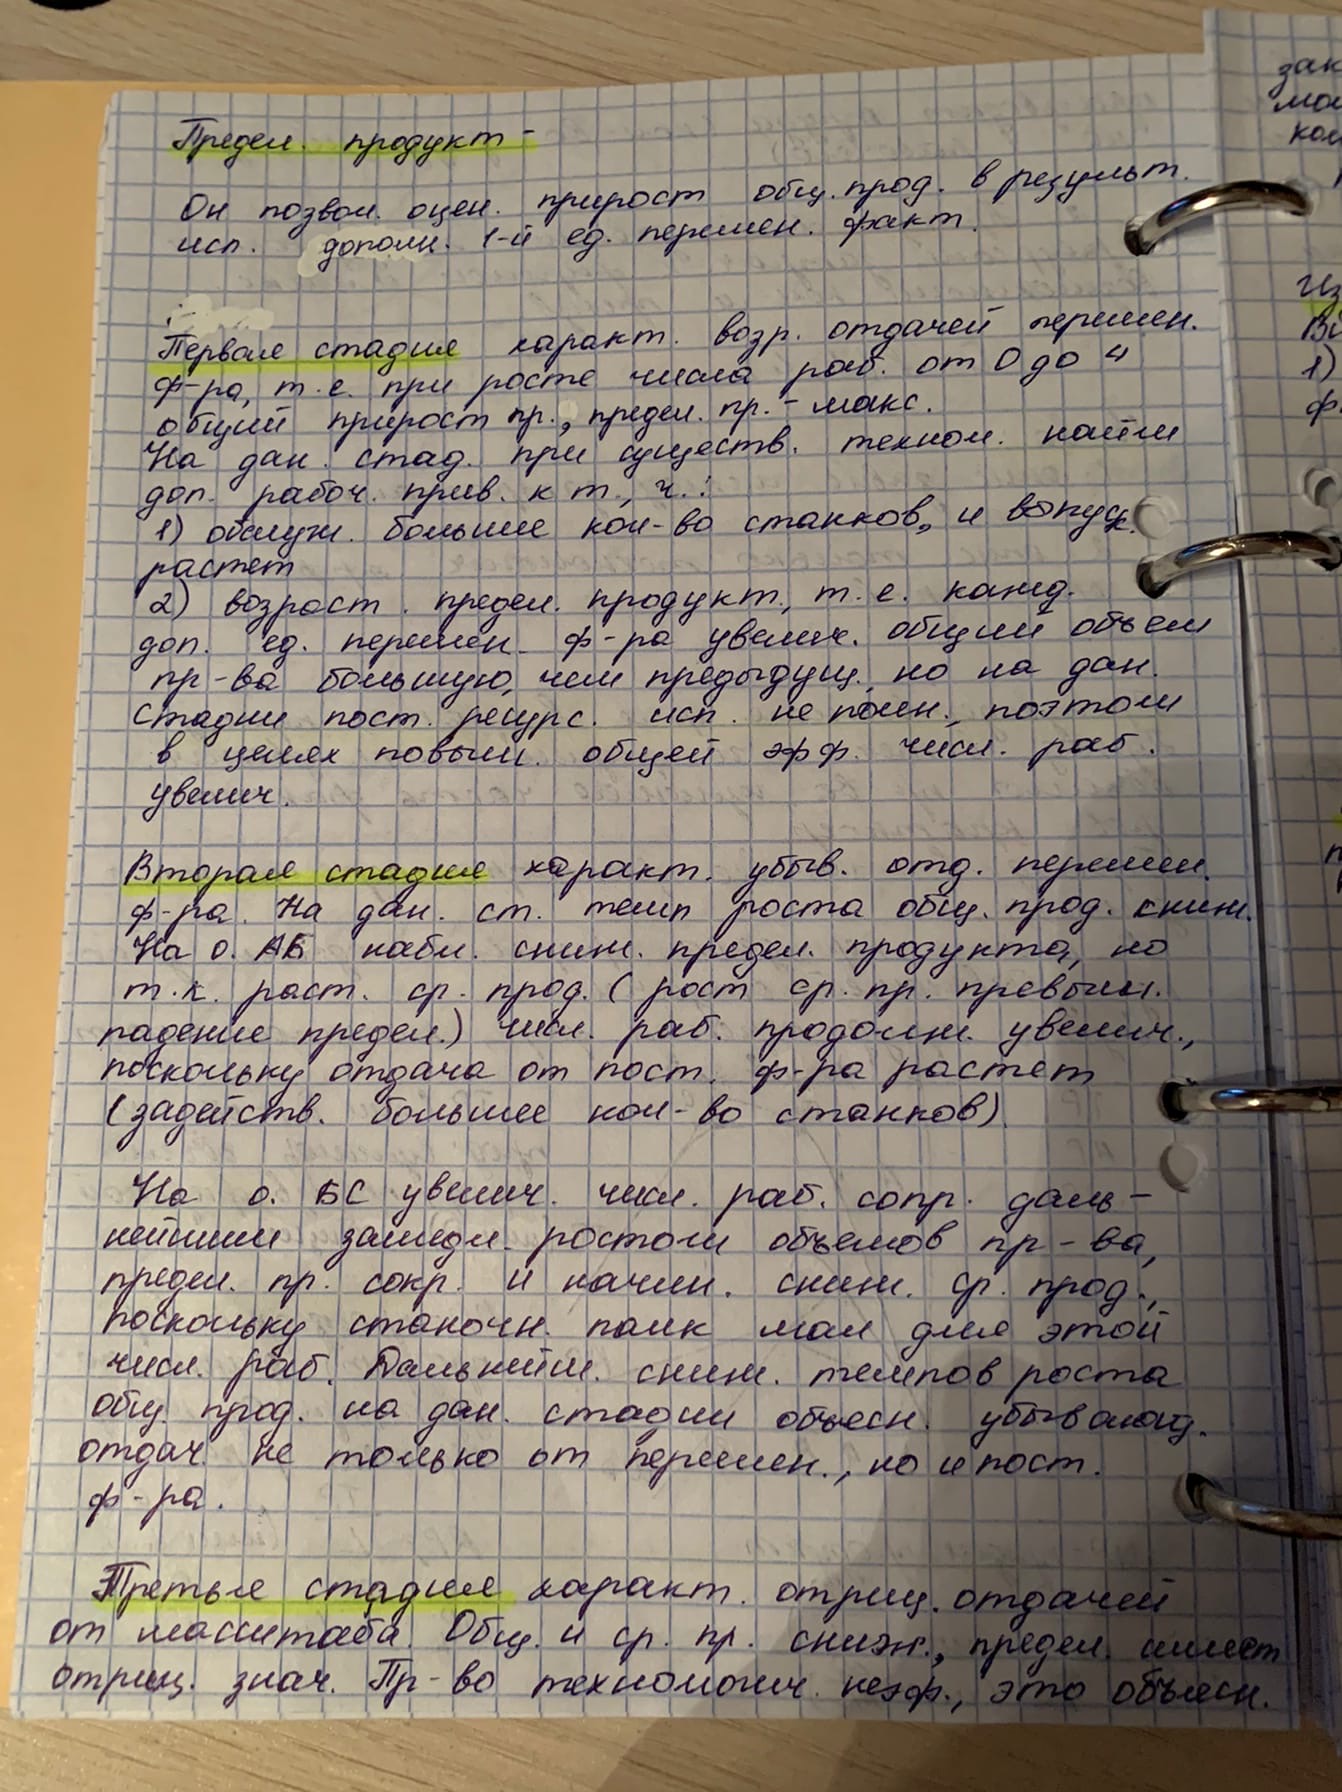 Предел. продукт -
Он позвол. оцен. прирост общ. прод. в результ.
исп. дополн. 1-й ед. перемен. факт.
Первая стадия характ. возр. отдачей перемен.
ф-ра, т.е. при росте числа раб. от 0 до 4
общий прирост пр., предел. пр. - макс.
На дан. стад. при существ. технол. найм
доп. рабоч. прив. к т., ч.:
1) обслуж. больше кол-во станков, и выпуск.
растет
2) возраст. предел. продукт, т.е. кажд.
доп. ед. перемен. ф-ра увелич. общий объем
пр-ва большую, чем предыдущ., но на дан.
стадии пост. ресурс. исп. не полн., поэтом
в целях повыш. общей эфф. числ. раб.
увелич.
Вторая стадия характ. убыв. отд. перемен.
ф-ра. На дан. ст. темп роста общ. прод. сниж.
На о. АБ набл. сниж. предел. продукта, но
т.к. раст. ср. прод. (рост ср. пр. превыш.
падение предел.) числ. раб. продолж. увелич.,
поскольку отдача от пост. ф-ра растет
(задейств. больше кол-во станков)
На о. БС увелич. числ. раб. сопр. даль-
нейшим замедл. ростом объемов пр-ва,
предел. пр. сокр. и начин. сниж. ср. прод.,
поскольку станочн. парк мал для этой
числ. раб. Дальнейш. сниж. темпов роста
общ. прод. на дан. стадии объясн. убывающ.
отдач. не только от перемен., но и пост.
ф-ра.
Третья стадия характ. отриц. отдачей
от масштаба. Общ. и ср. пр. сниж., предел. имеет
отриц. знач. Пр-во технологич. неэф., это объясн.
зак
кол
Из
1)
ф.